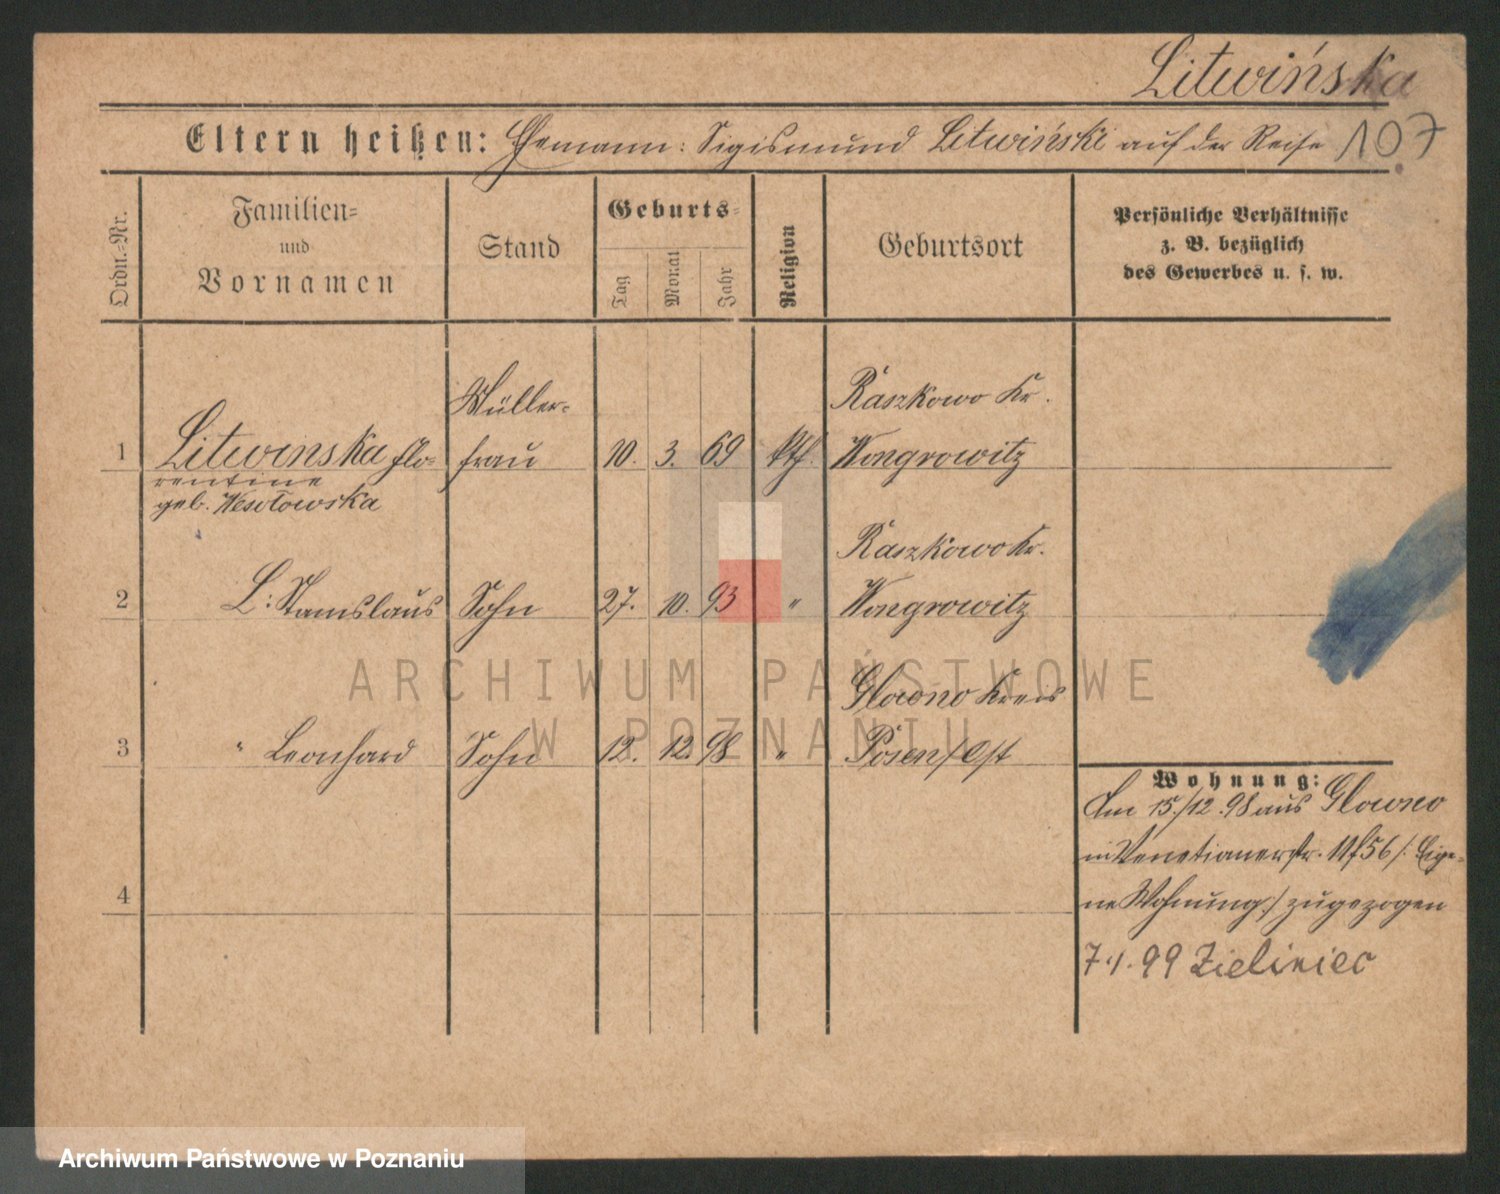 Litwińska
Eltern heißen: Ehemann: Sigismund Litwiński auf der Reise 107
Ordn.-Nr.
Familien-
und
Vornamen
Stand
Geburts-
Tag
Monat
Jahr
Religion
Geburtsort
Persönliche Verhältnisse
z. B. bezüglich
des Gewerbes u. s. w.
1 Litwinska Flo-
rentine
geb. Wesołowska
Müller-
frau
10. 3. 69 kth.
Raszkowo Kr.
Wongrowitz
2 L: Stanislaus Sohn 27. 10. 93 "
Raszkowo Kr.
Wongrowitz
3 " Leonhard Sohn 12. 12. 98 "
Glowno Kreis
Posen/Ost
4
Wohnung:
Am 15./12. 98 aus Glowno
in Venetianerstr. 11/56 /: Eige-
ne Wohnung:/ zugezogen
7.1.99 Zieliniec
ARCHIWUM PAŃSTWOWE
W POZNANIU
Archiwum Państwowe w Poznaniu